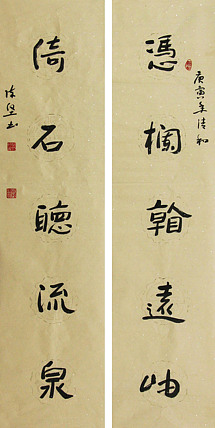 庚寅年清和
憑欄遠岫
倚石聽流泉